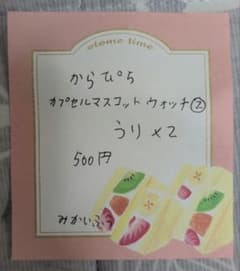 otome time
からぴち
カプセルマスコットウォッチ②
うり×2
500円
みかいふう